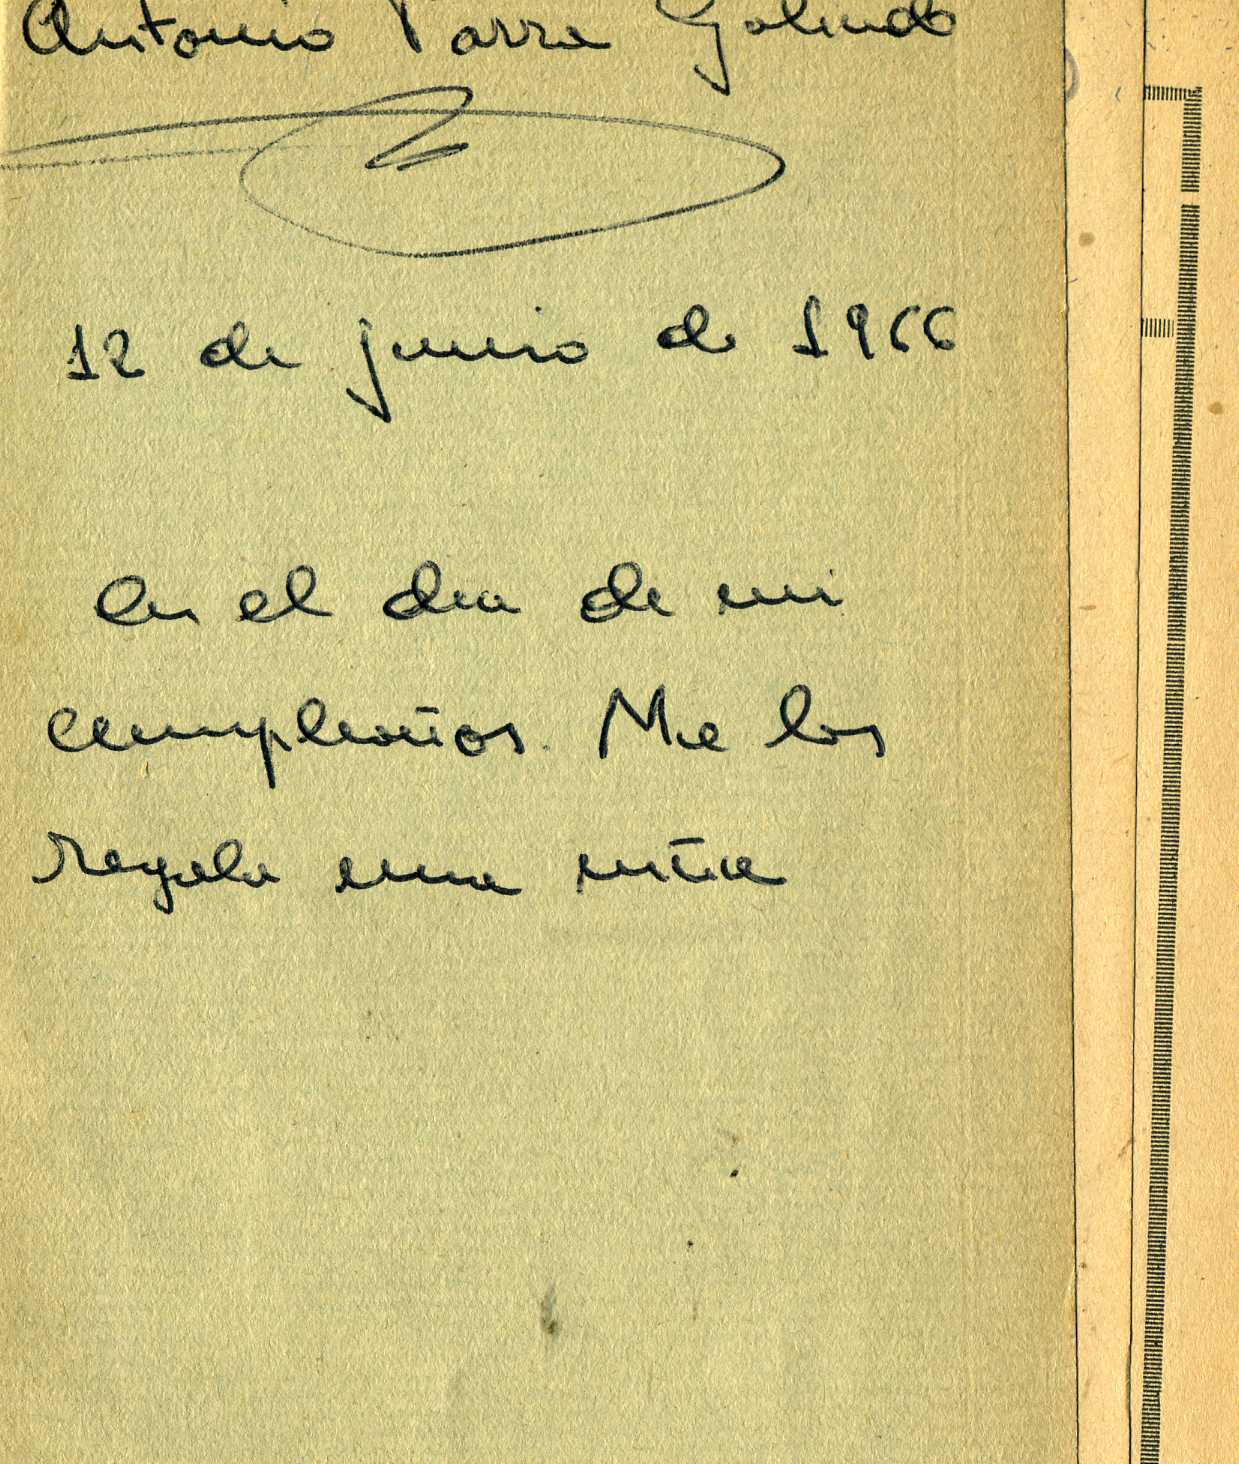 Antonio Parra Galindo
12 de junio de 1966
En el dia de mi
cumpleaños. Me los
regala una niña